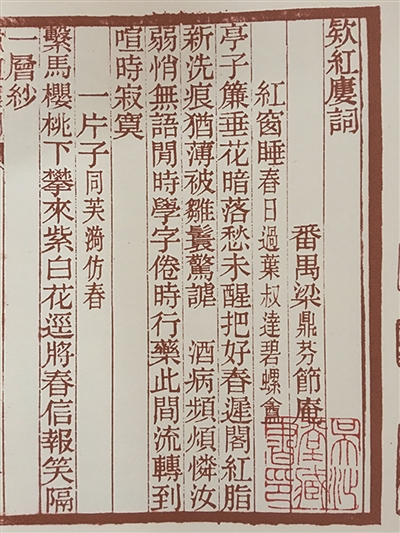 欵紅廔詞
番禺梁鼎芬節庵
紅窗睡春日過葉叔達碧螺盦
亭子簾垂花暗落愁未醒把好春遲閣紅脂
新洗痕猶薄被雛鬟驚謔 酒病頻煩憐汝
弱悄無語閒時學字倦時行藥此間流轉到
喧時寂寞
一片子同芙漪仿春
繫馬櫻桃下攀來紫白花逕將春信報笑隔
一層紗